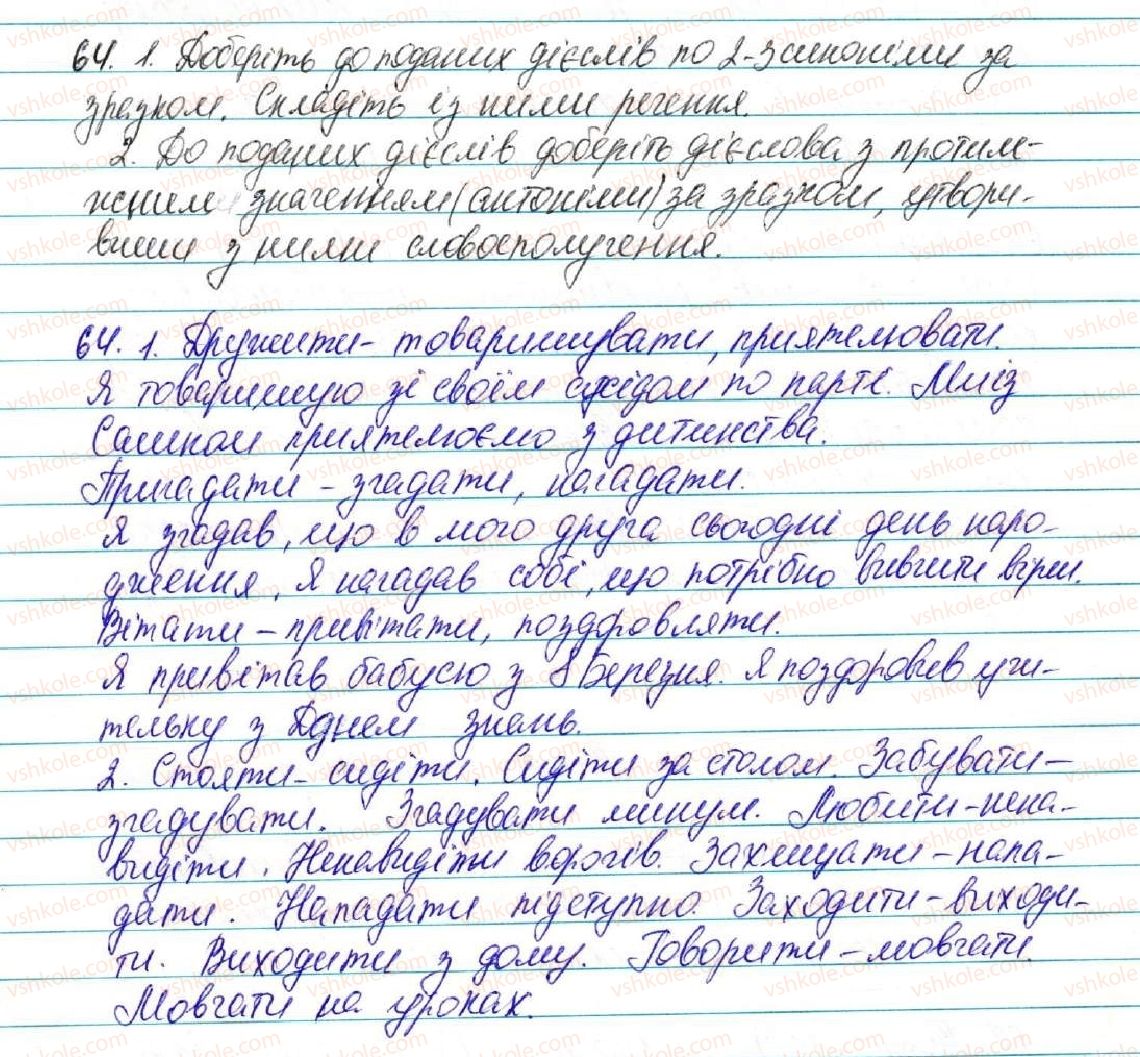 64. 1. Доберіть до поданих дієслів по 2-3 синоніми за
зразком. Складіть із ними речення.
2. До поданих дієслів доберіть дієслова з протиле-
жним значенням (антоніми) за зразком, утвори-
вши з ними словосполучення.
64. 1. Дружити - товаришувати, приятелювати.
Я товаришую зі своїм сусідом по парті. Ми із
Сашком приятелюємо з дитинства.
Пригадати - згадати, нагадати.
Я згадав, що в мого друга сьогодні день наро-
дження. Я нагадав собі, що потрібно вивчити вірш.
Вітати - привітати, поздоровляти.
Я привітав бабусю з 8 Березня. Я поздоровив учи-
тельку з Днем знань.
2. Стояти - сидіти. Сидіти за столом. Забувати -
згадувати. Згадувати минуле. Любити - нена-
видіти. Ненавидіти ворогів. Захищати - напа-
дати. Нападати підступно. Заходити - виходи-
ти. Виходити з дому. Говорити - мовчати.
Мовчати на уроках.